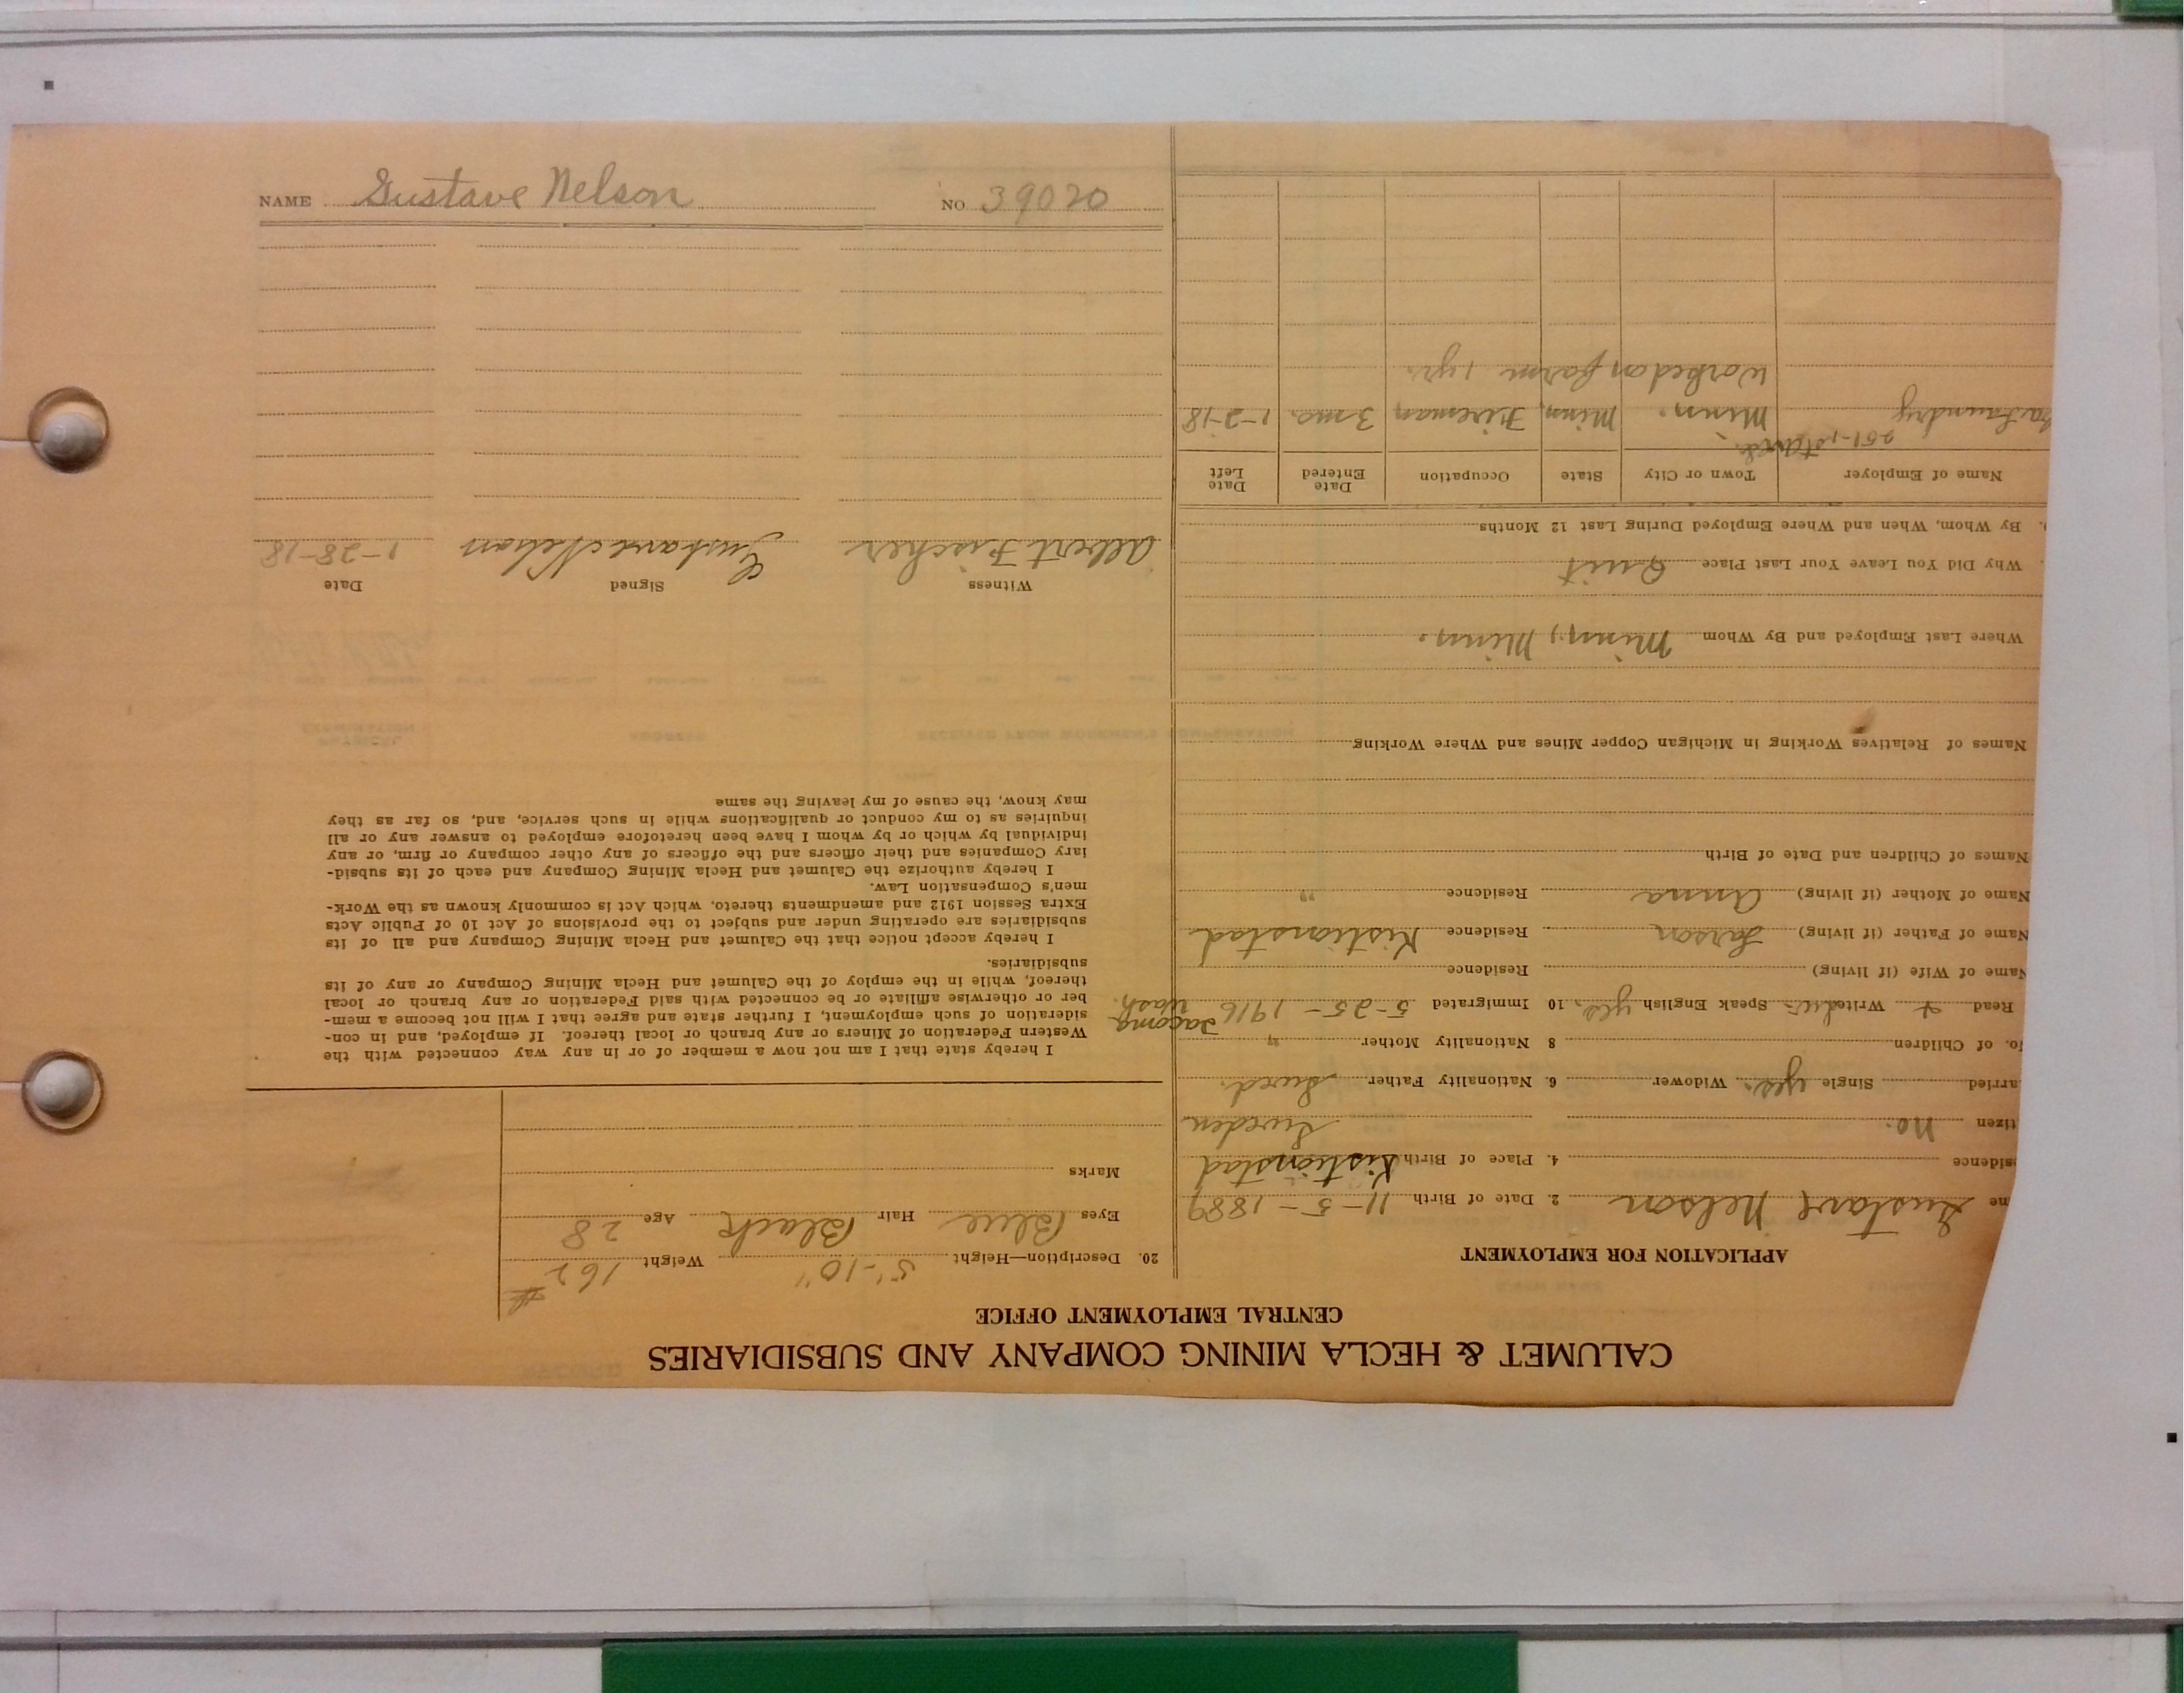 NAME Gustave Nelson NO 39020
CALUMET & HECLA MINING COMPANY AND SUBSIDIARIES
CENTRAL EMPLOYMENT OFFICE
APPLICATION FOR EMPLOYMENT
me Gustave Nelson 2. Date of Birth 11-5-1889
sidence 4. Place of Birth Kistionstad
tizen no. Sweden
arried Single yes. Widower 6. Nationality Father Swed.
o. of Children 8 Nationality Mother "
Read & Write Speak English yes. 10 Immigrated 5-25-1916 Tacoma Wash.
Name of Wife (if living) Residence
Name of Father (if living) Larson Residence Kistionstad
Name of Mother (if living) Anna Residence "
Names of Children and Date of Birth
Names of Relatives Working in Michigan Copper Mines and Where Working
Where Last Employed and By Whom Minn, Minn.
Why Did You Leave Your Last Place Quit
By Whom, When and Where Employed During Last 12 Months
Name of Employer Town or City State Occupation Date Entered Date Left
Laundry Minn. Minn, Fireman 3 mo. 1-2-18
Worked on farm 1 yr.
20. Description—Height 5'-10" Weight 162 #
Eyes Blue Hair Black Age 28
Marks
I hereby state that I am not now a member of or in any way connected with the
Western Federation of Miners or any branch or local thereof. If employed, and in con-
sideration of such employment, I further state and agree that I will not become a mem-
ber or otherwise affiliate or be connected with said Federation or any branch or local
thereof, while in the employ of the Calumet and Hecla Mining Company or any of its
subsidiaries.
I hereby accept notice that the Calumet and Hecla Mining Company and all of its
subsidiaries are operating under and subject to the provisions of Act 10 of Public Acts
Extra Session 1912 and amendments thereto, which Act is commonly known as the Work-
men's Compensation Law.
I hereby authorize the Calumet and Hecla Mining Company and each of its subsid-
iary Companies and their officers and the officers of any other company or firm, or any
individual by which or by whom I have been heretofore employed to answer any or all
inquiries as to my conduct or qualifications while in such service, and, so far as they
may know, the cause of my leaving the same
Witness Signed Date
Albert Fischer Gustave Nelson 1-28-18